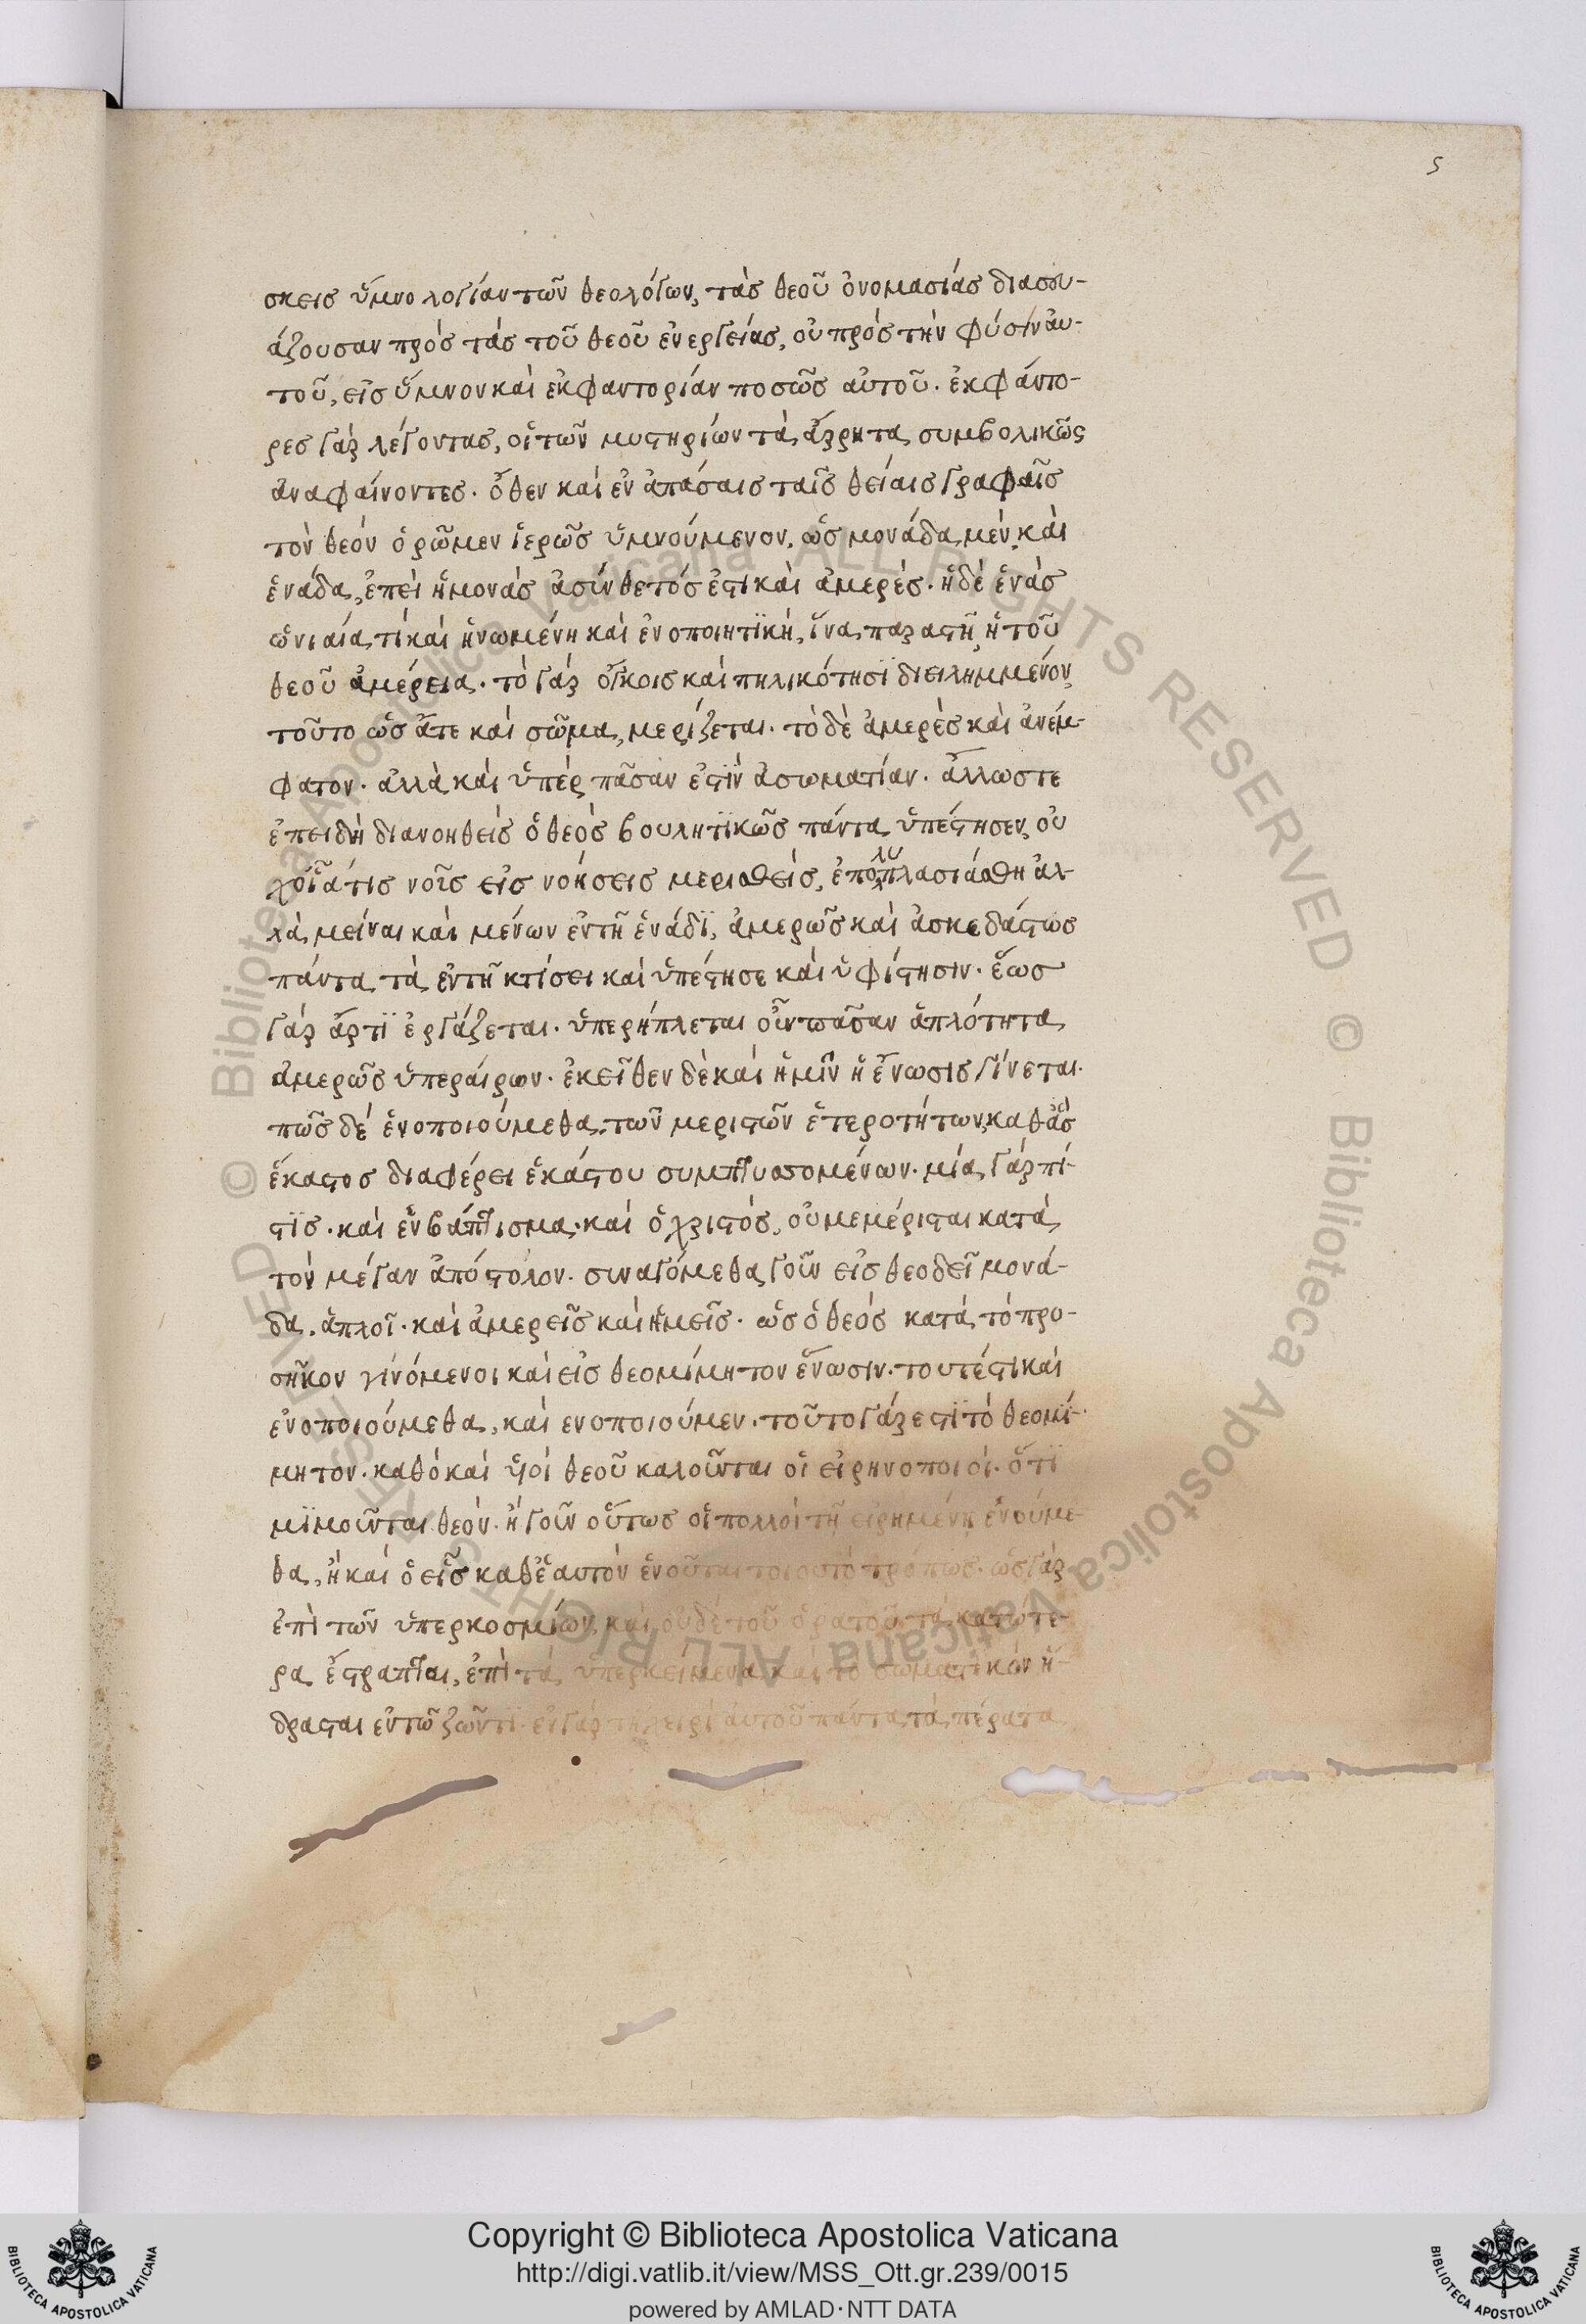 5
σκεις ὕμνολογίαν τῶν θεολόγων, τὰς θεοῦ ὀνομασίας διασκευ-
άζουσαν πρὸς τὰς τοῦ θεοῦ ἐνεργείας, οὐ πρὸς τὴν φύσιν αὐ-
τοῦ, εἰς ὕμνον καὶ ἐκφαντορίαν ποσῶς αὐτοῦ. ἐκφάντο-
ρες γὰρ λέγονται, οἱ τῶν μυστηρίων τὰ ἄρρητα συμβολικῶς
ἀναφαίνοντες. ὅθεν καὶ ἐν ἁπάσαις ταῖς θείαις γραφαῖς
τὸν θεὸν ὁρῶμεν ἱερῶς ὑμνούμενον, ὡς μονάδα μὲν καὶ
ἑνάδα, ἐπεὶ ἡ μονὰς ἀσύνθετός ἐστι καὶ ἀμερές. ἡ δὲ ἑνὰς
ὡς ἑνιαία τὶ καὶ ἡνωμένη καὶ ἑνοποιητϊκὴ, ἵνα παραστῇ ἡ τοῦ
θεοῦ ἀμέρεια. τὸ γὰρ ὄγκοις καὶ πηλικότησϊ διειλημμένον,
τοῦτο ὡς ἅτε καὶ σῶμα, μερίζεται. τὸ δὲ ἀμερὲς καὶ ἀνέμ-
φατον. ἀλλὰ καὶ ὑπὲρ πᾶσαν ἐστϊν ἀσωματίαν. ἄλλως τε
ἐπειδὴ διανοηθεὶς ὁ θεὸς βουλητϊκῶς πάντα ὑπέστησεν, οὐ
χ' οἷά τις νοῦς εἰς νοήσεις μερισθεὶς, ἐπολυπλασιάσθη ἀλ-
λὰ μεῖναι καὶ μένων ἐν τῇ ἑνάδϊ, ἀμερῶς καὶ ἀσκεδάστως
πάντα τὰ ἐν τῇ κτίσει καὶ ὑπέστησε καὶ ὑφίστησιν. ἕως
γὰρ ἄρτϊ ἐργάζεται. ὑπερήπλεται οὖν πᾶσαν ἁπλότητα
ἀμερῶς ὑπεραίρων. ἐκεῖθεν δὲ καὶ ἡμῖν ἡ ἕνωσις γίνεται.
πῶς δὲ ἑνοποιούμεθα, τῶν μεριστῶν ἑτεροτήτων, καθ' ἃς
ἕκαστος διαφέρει ἑκάστου συμπτυσσομένων. μία γὰρ πί-
στϊς. καὶ ἓν βάπτισμα. καὶ ὁ χριστὸς, οὐ μεμέρισται κατὰ
τὸν μέγαν ἀπόστολον. συναγόμεθα γοῦν εἰς θεοδεῖ μονά-
δα, ἁπλοῖ. καὶ ἀμερεῖς καὶ ἡμεῖς. ὡς ὁ θεὸς κατὰ τὸ προ-
σῆκον γινόμενοι καὶ εἰς θεομίμητον ἕνωσιν. τουτέστι καὶ
ἐνοποιούμεθα, καὶ ενοποιούμεν. τοῦτο γάρ εστϊ τὸ θεομϊ-
μητον. καθὸ καὶ υἱοὶ θεοῦ καλοῦνται οἱ εἰρηνοποιοί. ὅτϊ
μϊμοῦνται θεόν. ἢ γοῦν οὕτως οἱ πολλοὶ τῇ εἰρημένῃ ἑνούμε-
θα, ἢ καὶ ὁ εἷς καθ' ἑαυτὸν ἑνοῦται τρόπως. ὡς γὰρ
ἐπὶ τῶν ὑπερκοσμίων, καὶ οὐδὲ τοῦ ὁρατοῦ τὰ κατώτε-
ρα ἔστραπται, ἐπὶ τὰ ὑπερκείμενα καὶ τὸ σωματικὸν ἥ-
δρασται ἐν τῷ ζῶντϊ. ἐν γὰρ τῇ χειρὶ αὐτοῦ πάντα τὰ πέρατα
Copyright © Biblioteca Apostolica Vaticana
http://digi.vatlib.it/view/MSS_Ott.gr.239/0015
powered by AMLAD·NTT DATA
BIBLIOTECA APOSTOLICA VATICANA
BIBLIOTECA APOSTOLICA VATICANA
© Biblioteca Apostolica Vaticana ALL RIGHTS RESERVED © Biblioteca Apostolica Vaticana ALL RIGHTS RESERVED